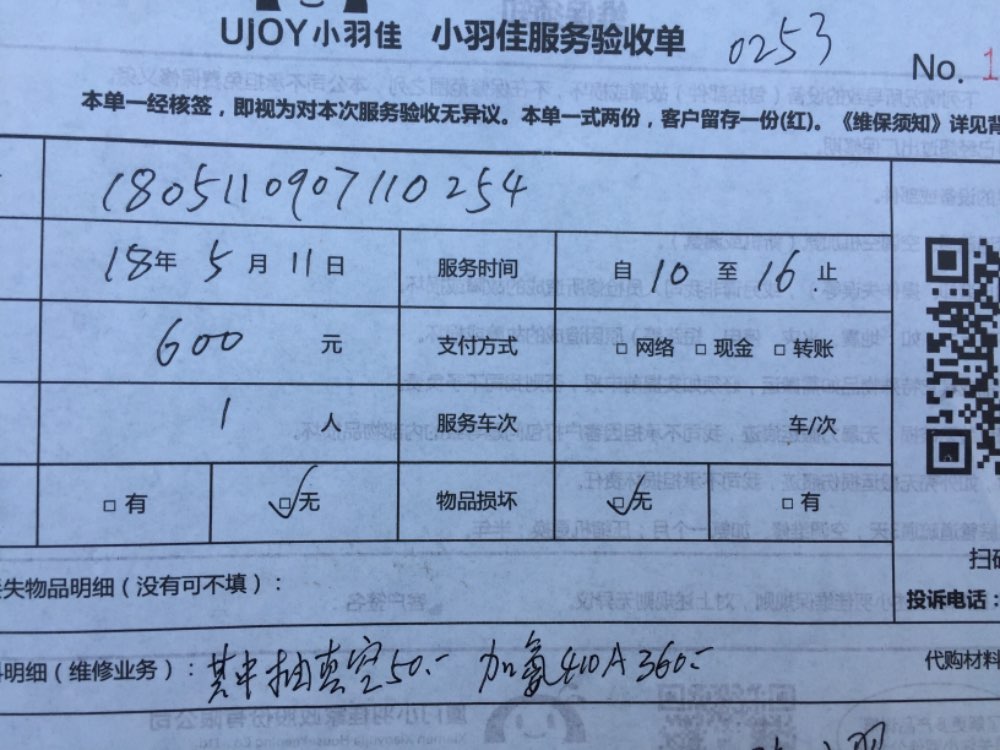 UJOY小羽佳 小羽佳服务验收单 0253
No. 1
本单一经核签，即视为对本次服务验收无异议。本单一式两份，客户留存一份(红)。《维保须知》详见背
1805110907110254
18年 5月 11日 服务时间 自 10 至 16 止
600 元 支付方式 □ 网络 □ 现金 □ 转账
1 人 服务车次 车/次
□ 有 □ 无 物品损坏 □ 无 □ 有
扫码
失物品明细（没有可不填）：
投诉电话：
明细（维修业务）：其中抽真空50.- 加氟410A 360.-
代购材料